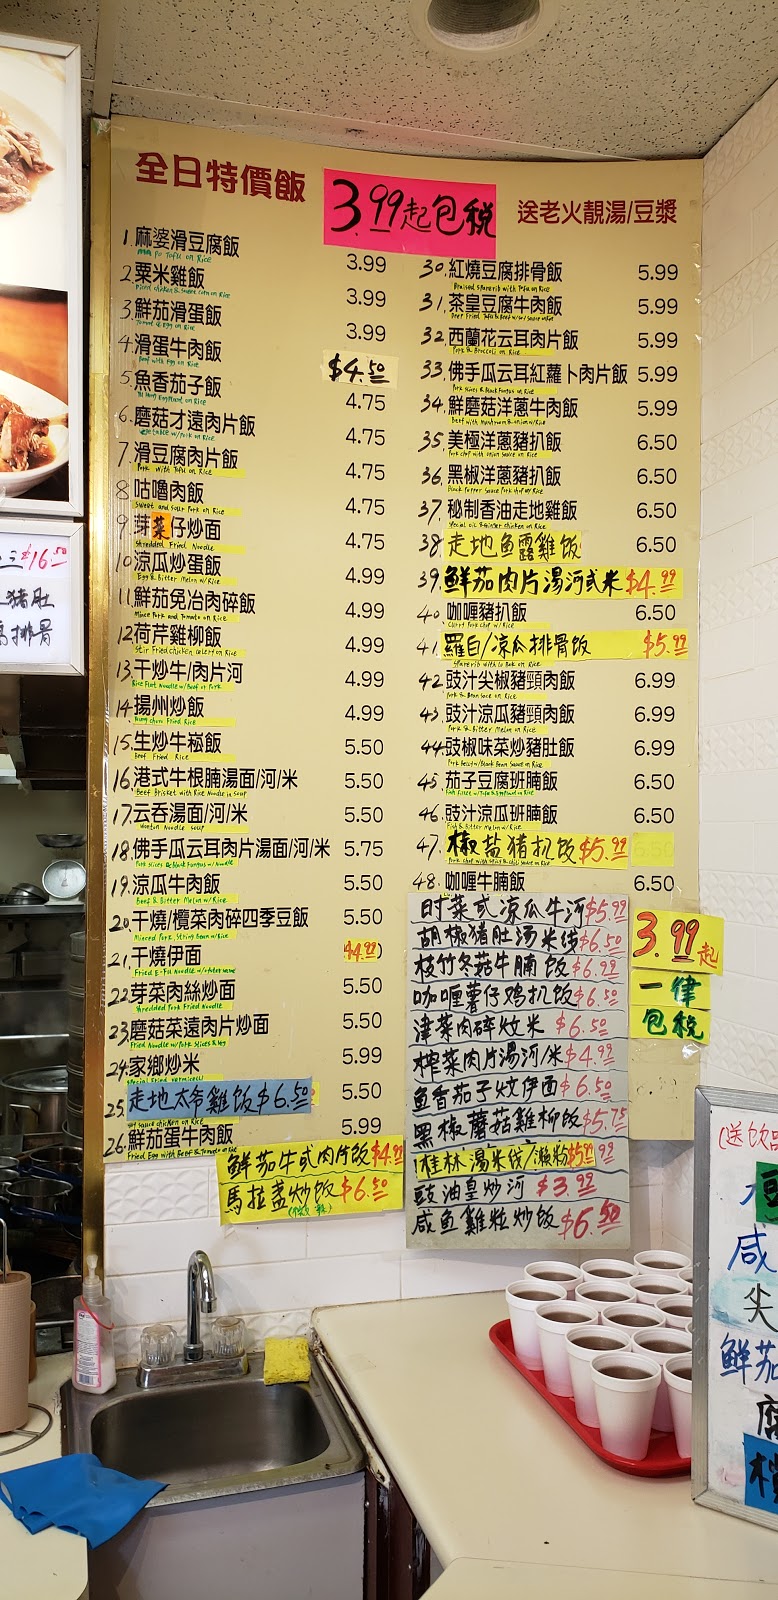 全日特價飯
3.99起包税
送老火靚湯/豆漿
1. 麻婆滑豆腐飯 3.99
Ma Po Tofu on Rice
2. 粟米雞飯 3.99
Diced chicken & sweet corn on Rice
3. 鮮茄滑蛋飯 3.99
Tomato & Egg on Rice
4. 滑蛋牛肉飯 $4.50
Beef with Egg on Rice
5. 魚香茄子飯 4.75
Yu Hong Eggplant on Rice
6. 磨菇才遠肉片飯 4.75
Vegetable w/pork on Rice
7. 滑豆腐肉片飯 4.75
Pork with Tofu on Rice
8. 咕嚕肉飯 4.75
Sweet and sour Pork on Rice
9. 芽菜仔炒面 4.75
Shredded Fried Noodle
10. 涼瓜炒蛋飯 4.99
Egg & Bitter Melon w/Rice
11. 鮮茄免冶肉碎飯 4.99
Mince Pork and Tomato on Rice
12. 荷芹雞柳飯 4.99
Stir Fried chicken celery on Rice
13. 干炒牛/肉片河 4.99
Rice Flat Noodle w/Beef or Pork
14. 揚州炒飯 4.99
Yung chow Fried Rice
15. 生炒牛崧飯 5.50
Beef Fried Rice
16. 港式牛根腩湯面/河/米 5.50
Beef Brisket with Rice Noodle in Soup
17. 云吞湯面/河/米 5.50
Wonton Noodle Soup
18. 佛手瓜云耳肉片湯面/河/米 5.75
Pork slices & Black Fungus w/Noodle
19. 涼瓜牛肉飯 5.50
Beef & Bitter Melon w/Rice
20. 干燒/欖菜肉碎四季豆飯 5.50
Minced Pork, String Bean w/Rice
21. 干燒伊面 $4.99
22. 芽菜肉絲炒面 5.50
Shredded Pork Fried Noodle
23. 磨菇菜遠肉片炒面 5.50
Fried Noodle w/Pork Slices & Veg
24. 家鄉炒米 5.99
Special Fried Vermicelli
25. 走地太爷雞饭 $6.50 5.50
Soy sauce chicken on Rice
26. 鮮茄蛋牛肉飯 5.99
Fried Egg with Beef & Tomato on Rice
鮮茄牛或肉片飯 $4.99
馬拉盞炒饭 $6.50
30. 紅燒豆腐排骨飯 5.99
Braised Sparerib with Tofu on Rice
31. 茶皇豆腐牛肉飯 5.99
32. 西蘭花云耳肉片飯 5.99
Pork & Broccoli on Rice
33. 佛手瓜云耳紅蘿卜肉片飯 5.99
Pork slices & Black Fungus on Rice
34. 鮮磨菇洋蔥牛肉飯 5.99
Beef with Mushroom & onion w/Rice
35. 美極洋蔥豬扒飯 6.50
Pork chop with onion sauce on Rice
36. 黑椒洋蔥豬扒飯 6.50
Black Pepper Sauce Pork chop w/Rice
37. 秘制香油走地雞飯 6.50
38. 走地鱼露雞饭 6.50
39. 鮮茄肉片湯河或米 $4.99
40. 咖喱豬扒飯 6.50
Curry Pork chop w/Rice
41. 羅白/凉瓜排骨饭 $5.99
Sparerib with Lo Bok on Rice
42. 豉汁尖椒豬頸肉飯 6.99
Pork & Bean Sauce on Rice
43. 豉汁涼瓜豬頸肉飯 6.99
Pork & Bitter Melon on Rice
44. 豉椒味菜炒豬肚飯 6.99
45. 茄子豆腐班腩飯 6.50
Fish Fillet w/Tofu & Eggplant on Rice
46. 豉汁涼瓜班腩飯 6.50
Fish & Bitter Melon w/Rice
47. 椒盐猪扒饭 $5.99 6.50
Pork chop with Salt & Chili Sauce on Rice
48. 咖喱牛腩飯 6.50
时菜或凉瓜牛河 $5.99
胡椒猪肚汤米线 $6.50
枝竹冬菇牛腩饭 $6.99
咖喱薯仔鸡扒饭 $6.50
津菜肉碎炆米 $6.50
榨菜肉片湯河/米 $4.99
鱼香茄子炆伊面 $6.50
黑椒蘑菇雞柳饭 $5.75
桂林湯米线/瀨粉 $5.99
豉油皇炒河 $3.99
咸鱼雞粒炒饭 $6.50
3.99起
一律
包税
$16.50
猪肚
排骨
(送饮品
咸
尖
鮮茄
腐